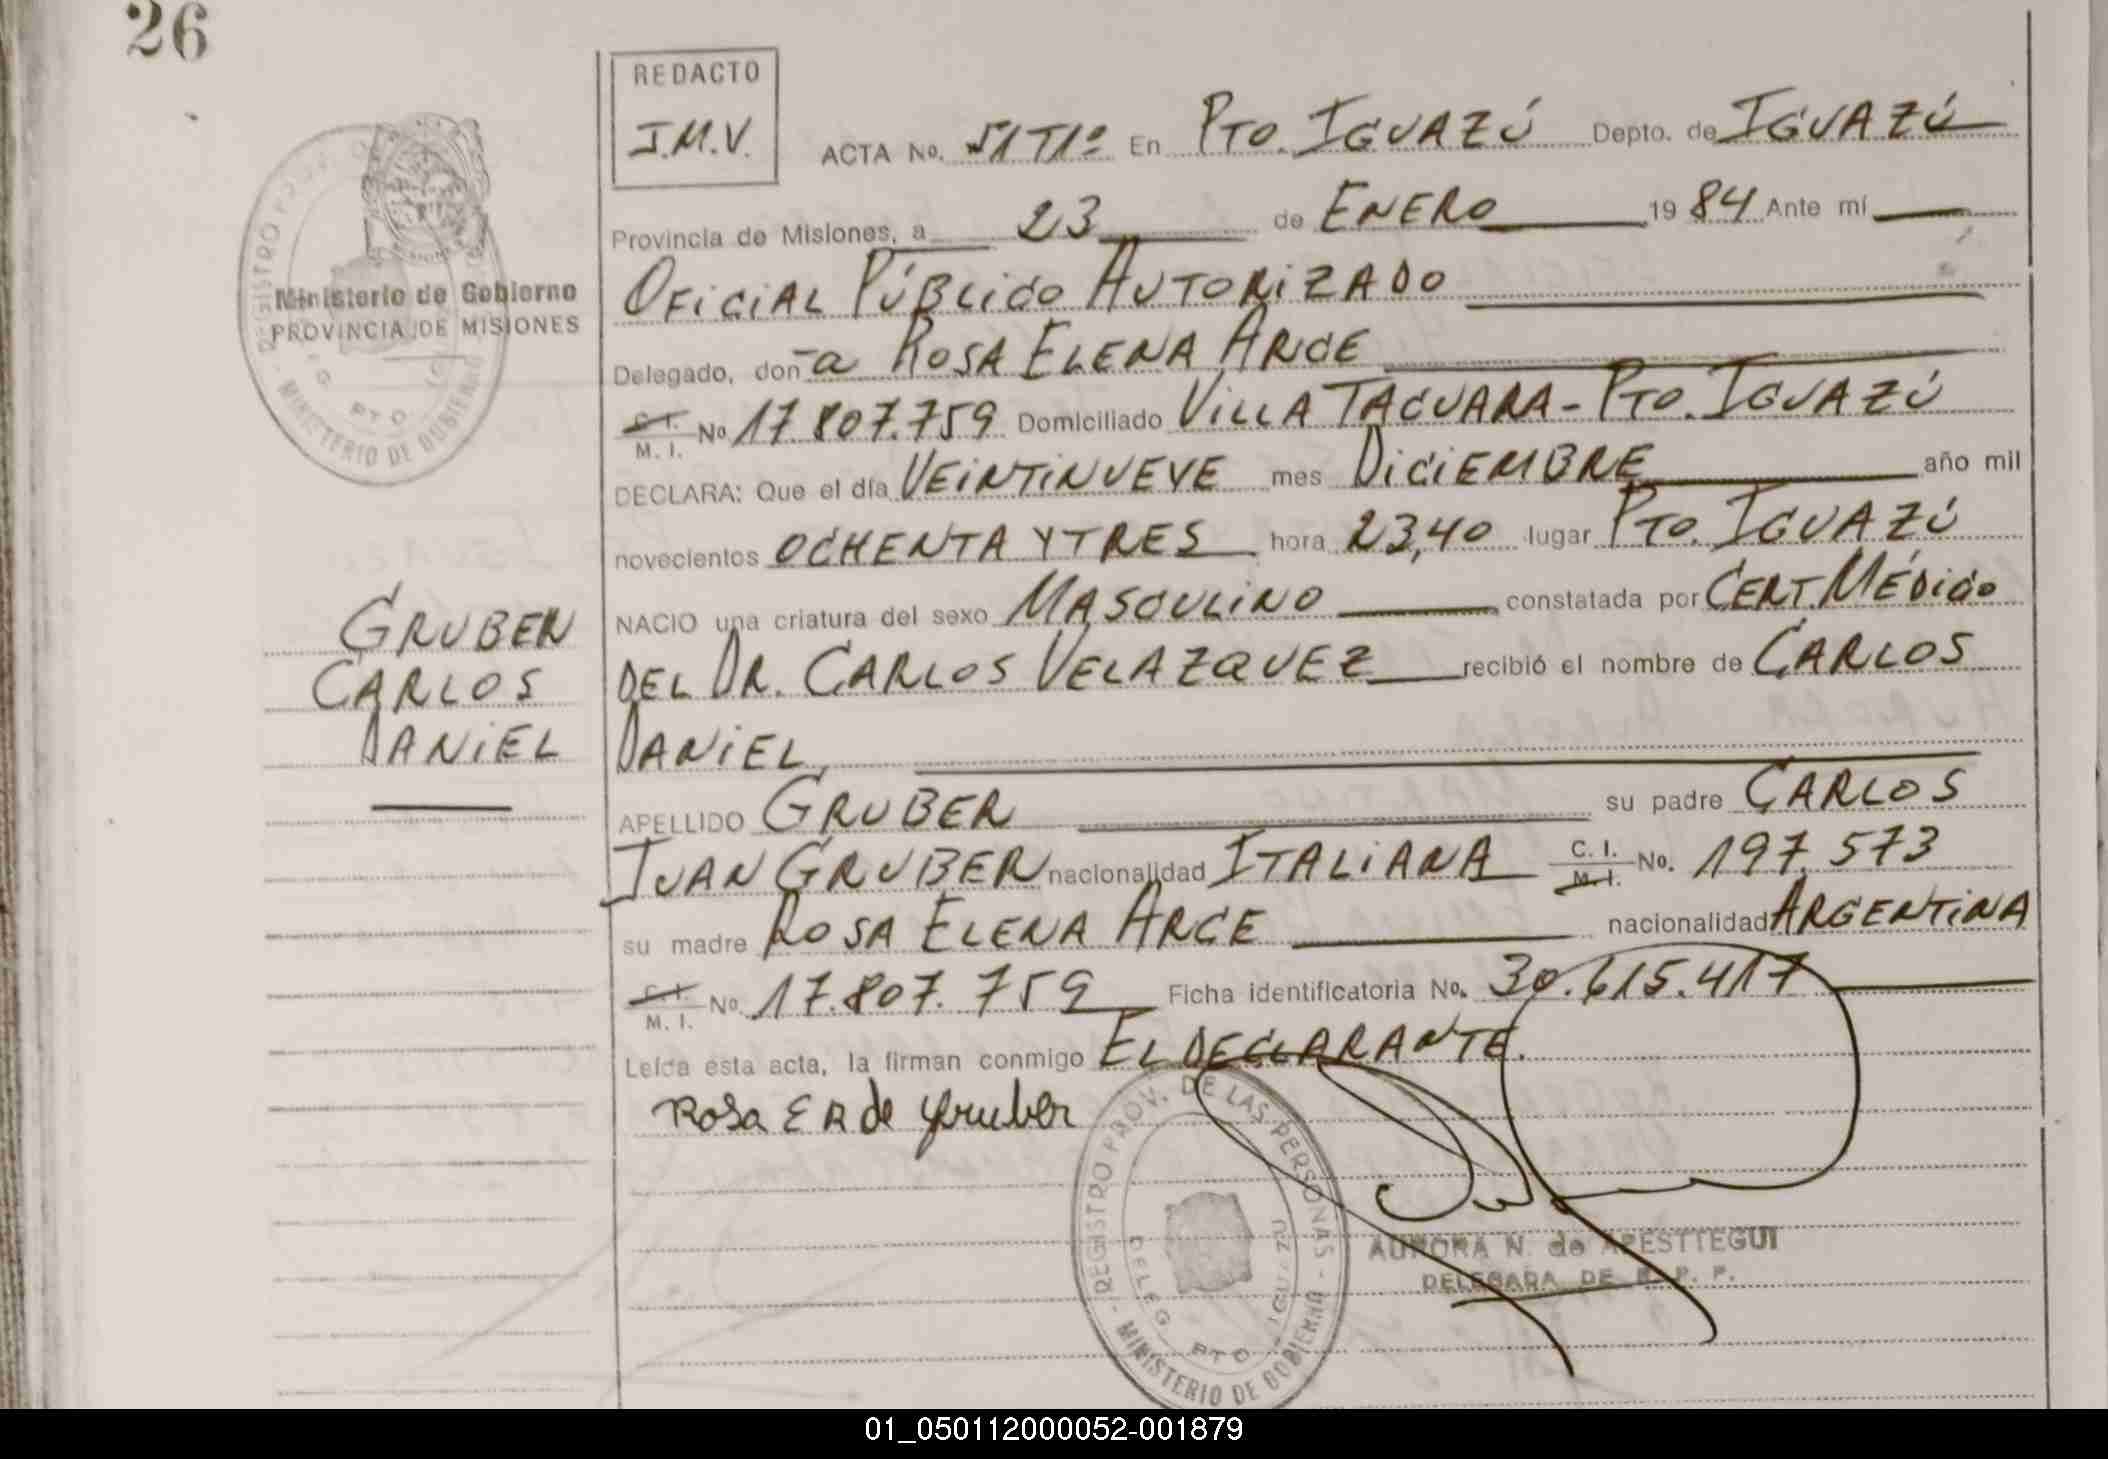 26
REDACTO
J.M.V.
ACTA No. 51T1º En PTO. IGUAZÚ Depto. de IGUAZÚ
Provincia de Misiones, a 23 de ENERO 1984 Ante mí
OFICIAL PÚBLICO AUTORIZADO
Delegado, doña ROSA ELENA ARCE
C.I. M. I. No 17.807.759 Domiciliado VILLA TACUARA - PTO. IGUAZÚ
DECLARA: Que el día VEINTINUEVE mes DICIEMBRE año mil
novecientos OCHENTA Y TRES hora 23,40 lugar PTO. IGUAZÚ
NACIO una criatura del sexo MASCULINO constatada por CERT. MÉDICO
DEL DR. CARLOS VELAZQUEZ recibió el nombre de CARLOS
DANIEL,
APELLIDO GRUBER su padre CARLOS
JUAN GRUBER nacionalidad ITALIANA C. I. M. I. No. 197.573
su madre ROSA ELENA ARCE nacionalidad ARGENTINA
C.I. M. I. No. 17.807.759 Ficha identificatoria No. 30.615.417
Leída esta acta, la firman conmigo EL DECLARANTE.
Rosa E A de Gruber
REGISTRO PROV. DE LAS PERSONAS - MINISTERIO DE GOBIERNO
DELEG. PTO. IGUAZU
AURORA N. de APESTTEGUI
DELEGADA DE R. P. P.
Ministerio de Gobierno
PROVINCIA DE MISIONES
REGISTRO - MINISTERIO DE GOBIERNO
PTO.
GRUBER
CARLOS
DANIEL
01_050112000052-001879